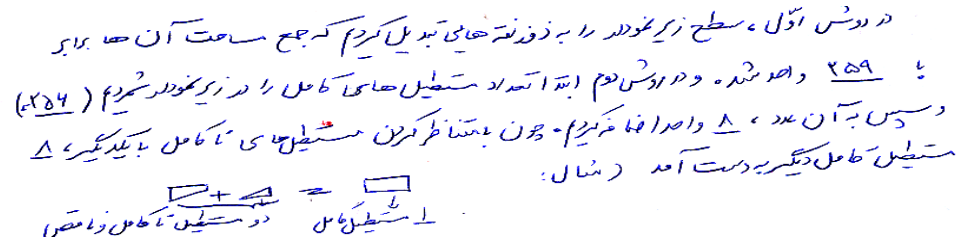 در روش اوّل، سطح زیر نمودار را به ذوزنقه هایی تبدیل کردم که جمع مساحت آن ها برابر
با ۲۵۹ واحد شد. و در روش دوم ابتدا تعداد مستطیل های کامل را در زیر نمودار شمردم (۲۵۶)
و سپس به آن عدد، ۸ واحد اضافه کردم. چون با متناظر کردن مستطیل های نا کامل با یکدیگر، ۸
مستطیل کامل دیگر به دست آمد (مثال:
+ =
دو مستطیل نا کامل و ناقص ۱ مستطیل کامل